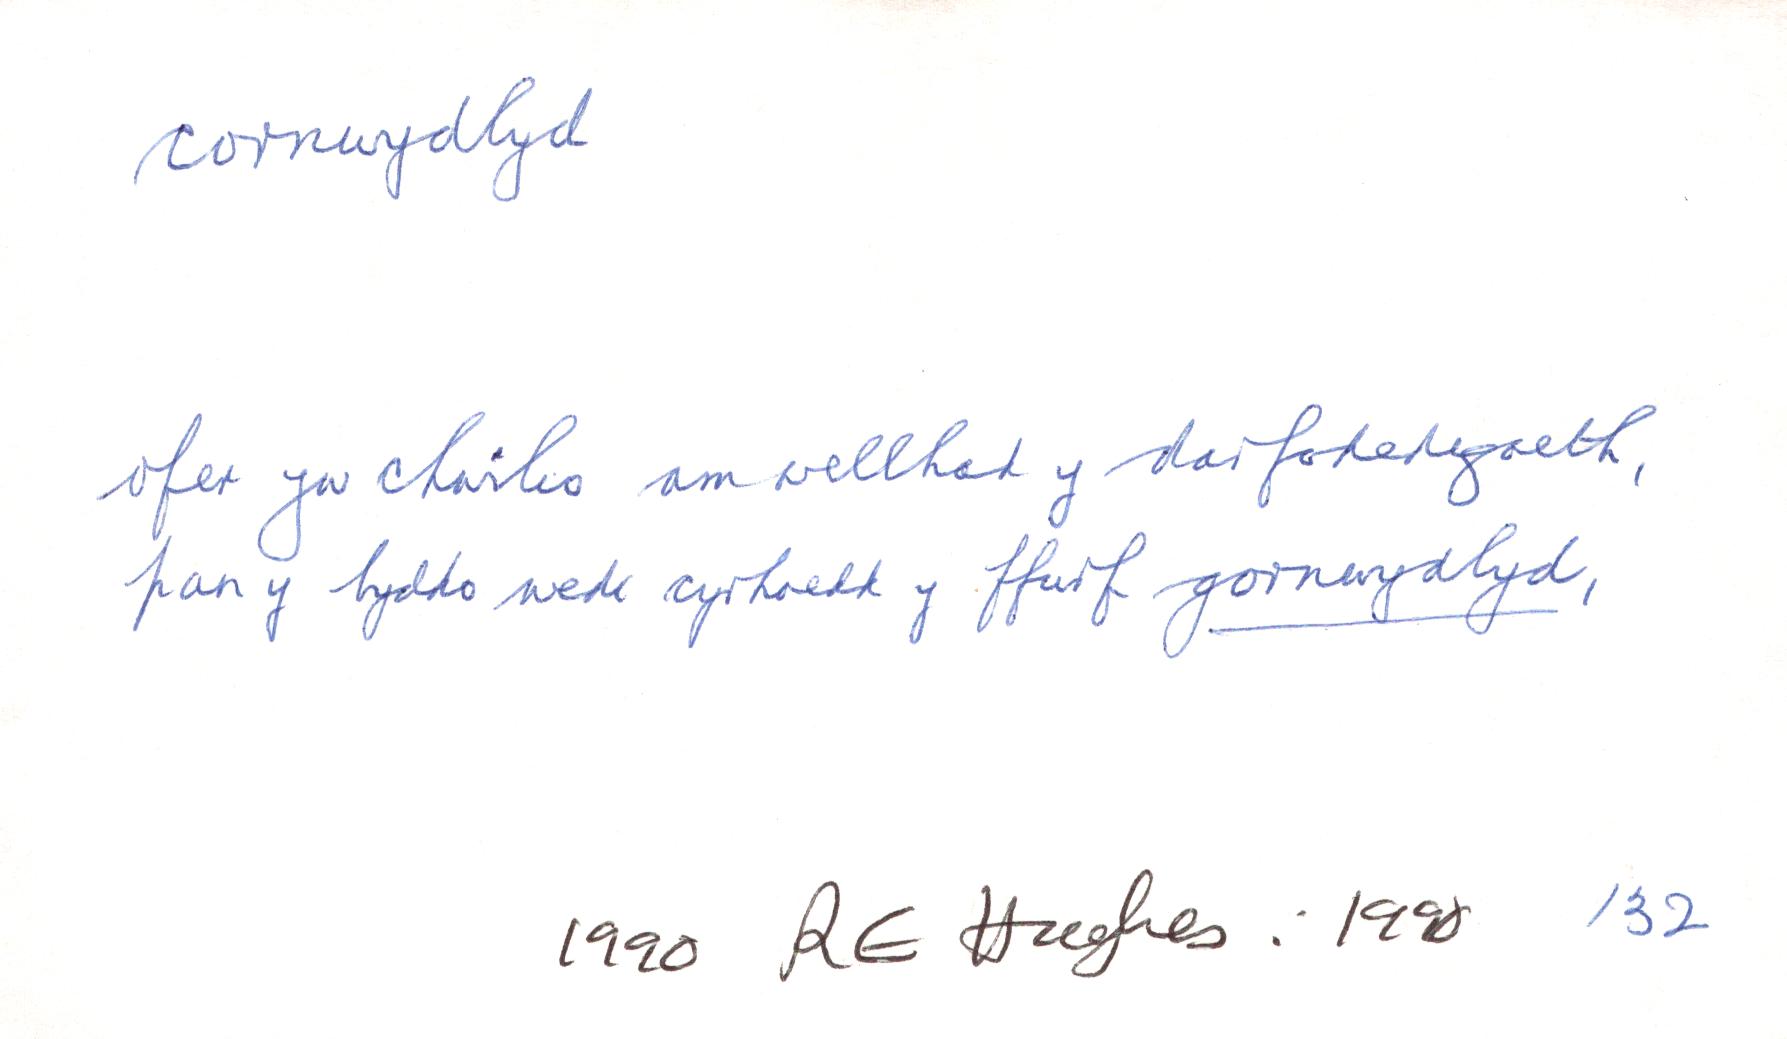 cornwydlyd
ofer yw chwilio am wellhad y darfodedigaeth,
pan y byddo wedi cyrhaedd y ffurf gornwydlyd,
1990 R E Hughes : 1990 132